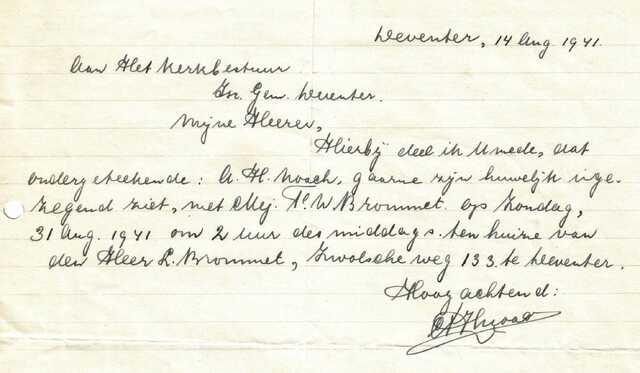 Deventer, 14 Aug. 1941.
Aan Het Kerkbestuur
Isr. Gem. Deventer.
Mijne Heeren,
Hierbij deel ik U mede, dat
ondergeteekende: A. H. Mosch, gaarne zijn huwelijk inge-
zegend ziet, met Mej. W. Brommet. op Zondag,
31 Aug. 1941 om 2 uur des middags. ten huize van
den Heer L. Brommet, Zwolsche weg 133 te Deventer.
Hoog achtend: